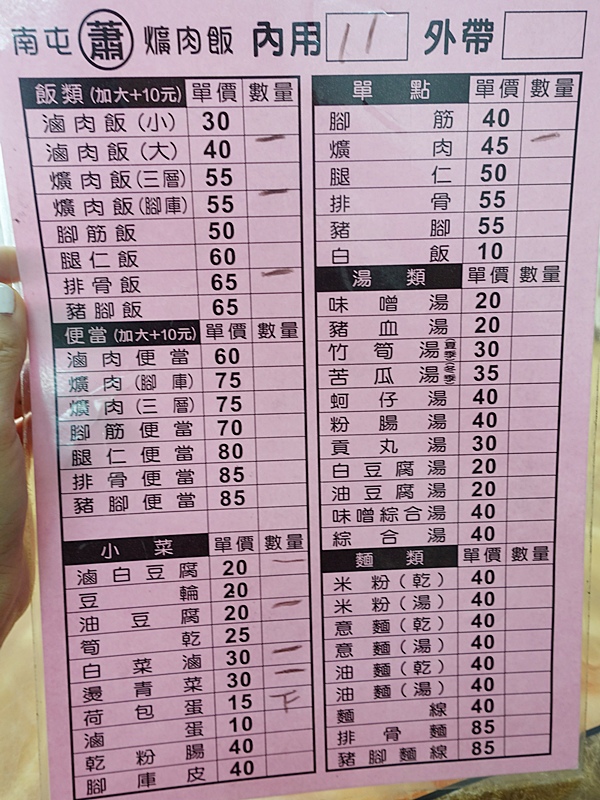 南屯 蕭 爌肉飯 內用 11 外帶
飯類(加大+10元) 單價 數量
滷肉飯(小) 30
滷肉飯(大) 40 一
爌肉飯(三層) 55
爌肉飯(腳庫) 55 一
腳筋飯 50
腿仁飯 60
排骨飯 65 一
豬腳飯 65
便當(加大+10元) 單價 數量
滷肉便當 60
爌肉(腳庫) 75
爌肉(三層) 75
腳筋便當 70
腿仁便當 80
排骨便當 85
豬腳便當 85
小菜 單價 數量
滷白豆腐 20 一
豆輪 20
油豆腐 20 一
筍乾 25
白菜滷 30 一
燙青菜 30 一
荷包蛋 15 下
滷蛋 10
乾粉腸 40
腳庫皮 40
單點 單價 數量
腳筋 40
爌肉 45 一
腿仁 50
排骨 55
豬腳 55
白飯 10
湯類 單價 數量
味噌湯 20
豬血湯 20
竹筍湯(夏季) 30
苦瓜湯(冬季) 35
蚵仔湯 40
粉腸湯 40
貢丸湯 30
白豆腐湯 20
油豆腐湯 20
味噌綜合湯 40
綜合湯 40
麵類 單價 數量
米粉(乾) 40
米粉(湯) 40
意麵(乾) 40
意麵(湯) 40
油麵(乾) 40
油麵(湯) 40
麵線 40
排骨麵 85
豬腳麵線 85